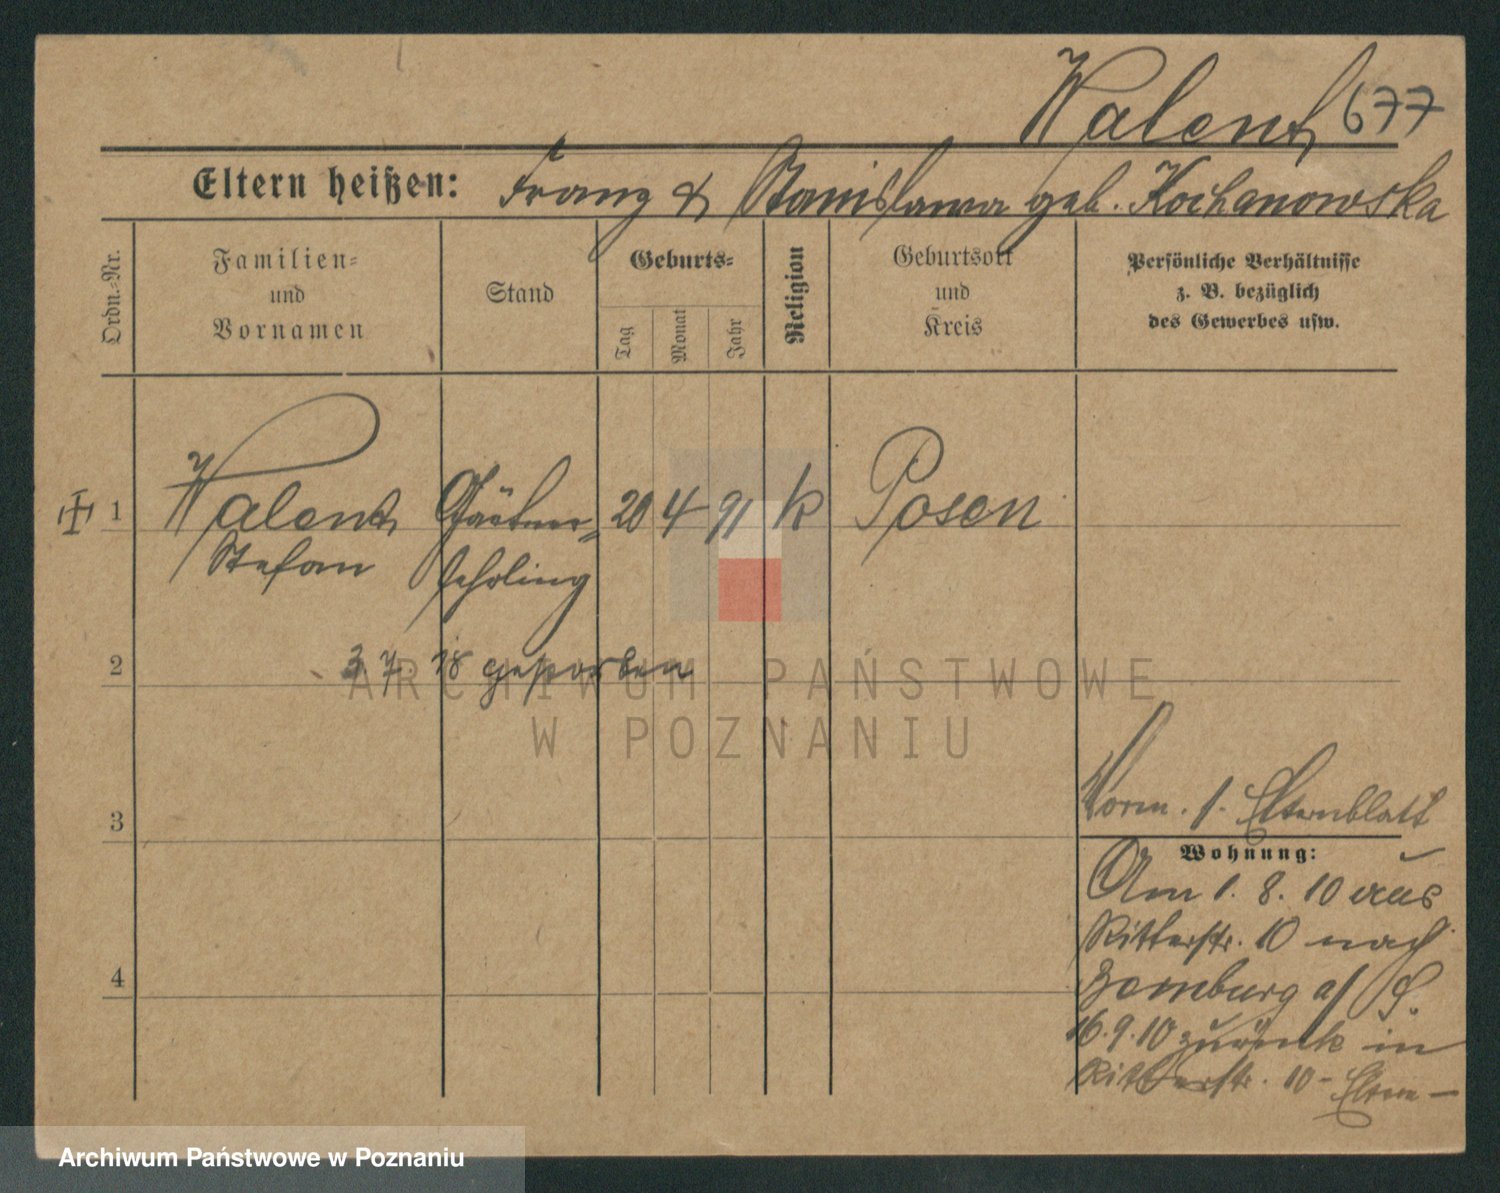 Walent 677
Eltern heißen: Franz & Stanislawa geb. Kochanowska
Ordn.-Nr.
Familien-
und
Vornamen
Stand
Geburts-
Tag
Monat
Jahr
Religion
Geburtsort
und
Kreis
Persönliche Verhältnisse
z. B. bezüglich
des Gewerbes usw.
1 Walent Gärtner- 20 4 91 k Posen
Stefan lehrling
2 3 7. 18 gestorben
ARCHIWUM PAŃSTWOWE
W POZNANIU
3
Vorm. s. Elternblatt
Wohnung:
Am 1. 8. 10 aus
Ritterstr. 10 nach
4
a/
16.9.10 zurück in
Ritterstr. 10 - Eltern -
Archiwum Państwowe w Poznaniu